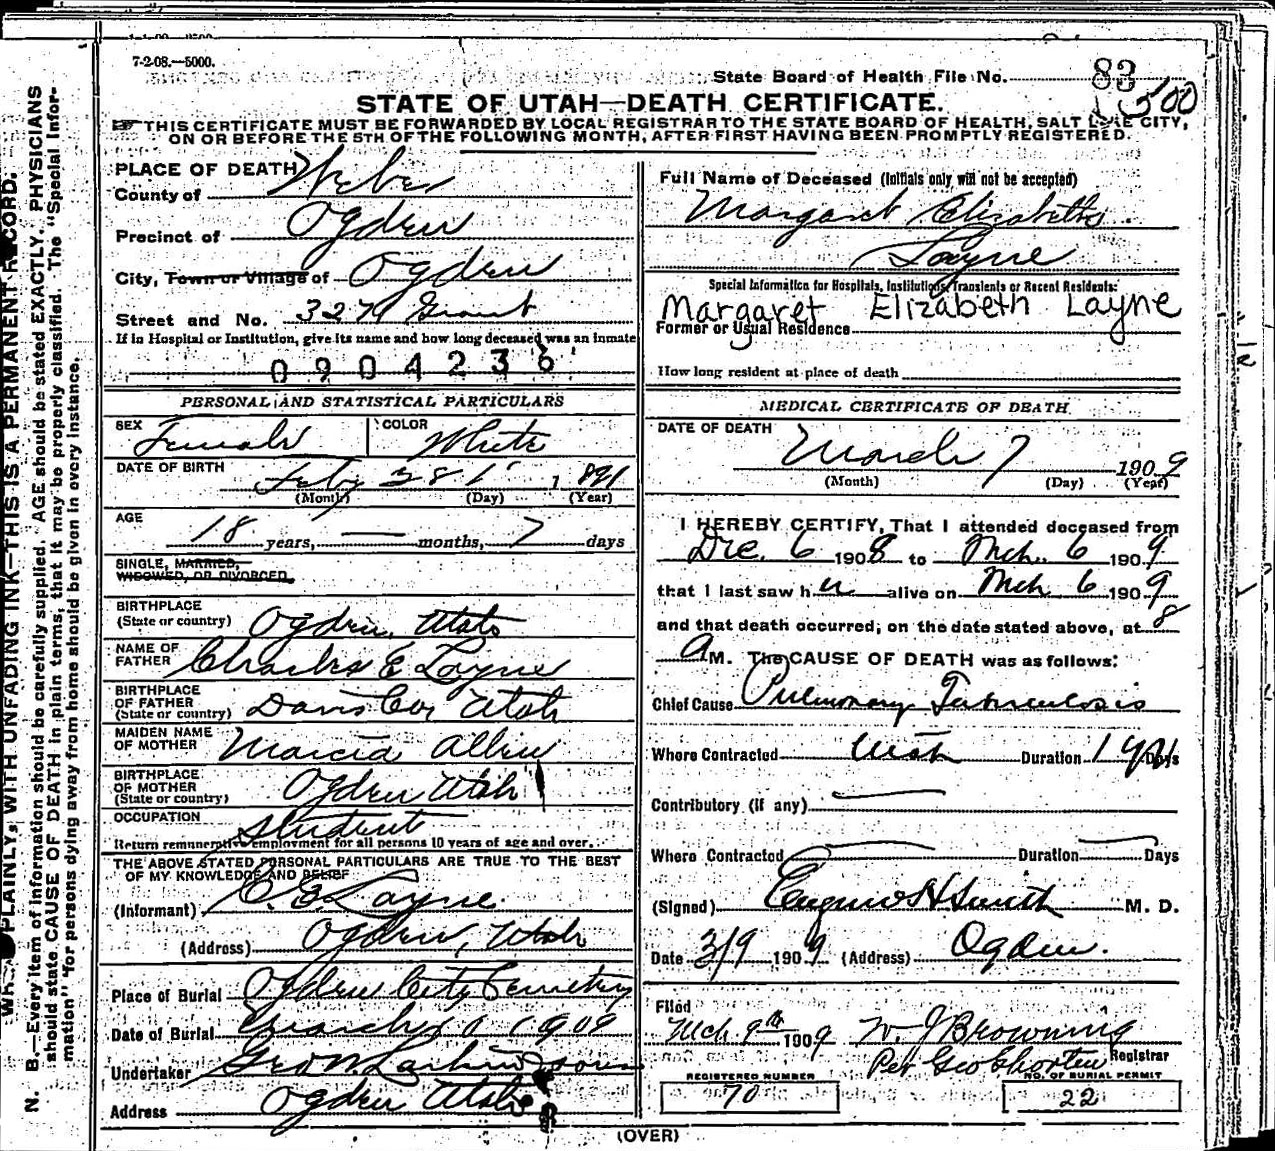 7-2-08.—5000.
State Board of Health File No. 83
500
STATE OF UTAH—DEATH CERTIFICATE.
THIS CERTIFICATE MUST BE FORWARDED BY LOCAL REGISTRAR TO THE STATE BOARD OF HEALTH, SALT LAKE CITY,
ON OR BEFORE THE 5TH OF THE FOLLOWING MONTH, AFTER FIRST HAVING BEEN PROMPTLY REGISTERED.
PLACE OF DEATH
County of Weber
Precinct of Ogden
City, Town or Village of Ogden
Street and No. 3274 Grant
If in Hospital or Institution, give its name and how long deceased was an inmate
0904236
PERSONAL AND STATISTICAL PARTICULARS
SEX Female COLOR White
DATE OF BIRTH Feby 28 1891
(Month) (Day) (Year)
AGE 18 years, — months, 7 days
SINGLE, MARRIED,
WIDOWED, OR DIVORCED.
BIRTHPLACE
(State or country) Ogden, Utah
NAME OF
FATHER Charles E Layne
BIRTHPLACE
OF FATHER
(State or country) Davis Co, Utah
MAIDEN NAME
OF MOTHER Marcia Allen
BIRTHPLACE
OF MOTHER
(State or country) Ogden Utah
OCCUPATION Student
Return remunerative employment for all persons 10 years of age and over.
THE ABOVE STATED PERSONAL PARTICULARS ARE TRUE TO THE BEST
OF MY KNOWLEDGE AND BELIEF
(Informant) C. E. Layne
(Address) Ogden, Utah
Place of Burial Ogden City Cemetery
Date of Burial March 10 1909
Undertaker Geo W. Larkin & Sons
Address Ogden Utah
Full Name of Deceased (Initials only will not be accepted)
Margaret Elizabeth
Layne
Special Information for Hospitals, Institutions, Transients or Recent Residents:
Margaret Elizabeth Layne
Former or Usual Residence
How long resident at place of death
MEDICAL CERTIFICATE OF DEATH
DATE OF DEATH
March 7 1909
(Month) (Day) (Year)
I HEREBY CERTIFY, That I attended deceased from
Dec. 6 1908 to Mch. 6 1909
that I last saw her alive on Mch 6 1909
and that death occurred, on the date stated above, at 8
A M. The CAUSE OF DEATH was as follows:
Chief Cause Pulmonary Tuberculosis
Where Contracted Utah Duration 1 yr Days
Contributory (if any) —
Where Contracted — Duration — Days
(Signed) Eugene H Smith M. D.
Date 3/9 1909 (Address) Ogden.
Filed
Mch. 9th 1909 W. J Browning
Registrar
Per Geo Shorten
REGISTERED NUMBER
70
NO. OF BURIAL PERMIT
22
(OVER)
PLAINLY, WITH UNFADING INK—THIS IS A PERMANENT RECORD.
N. B.—Every item of information should be carefully supplied. AGE should be stated EXACTLY. PHYSICIANS
should state CAUSE OF DEATH in plain terms, that it may be properly classified. The "Special Infor-
mation" for persons dying away from home should be given in every instance.